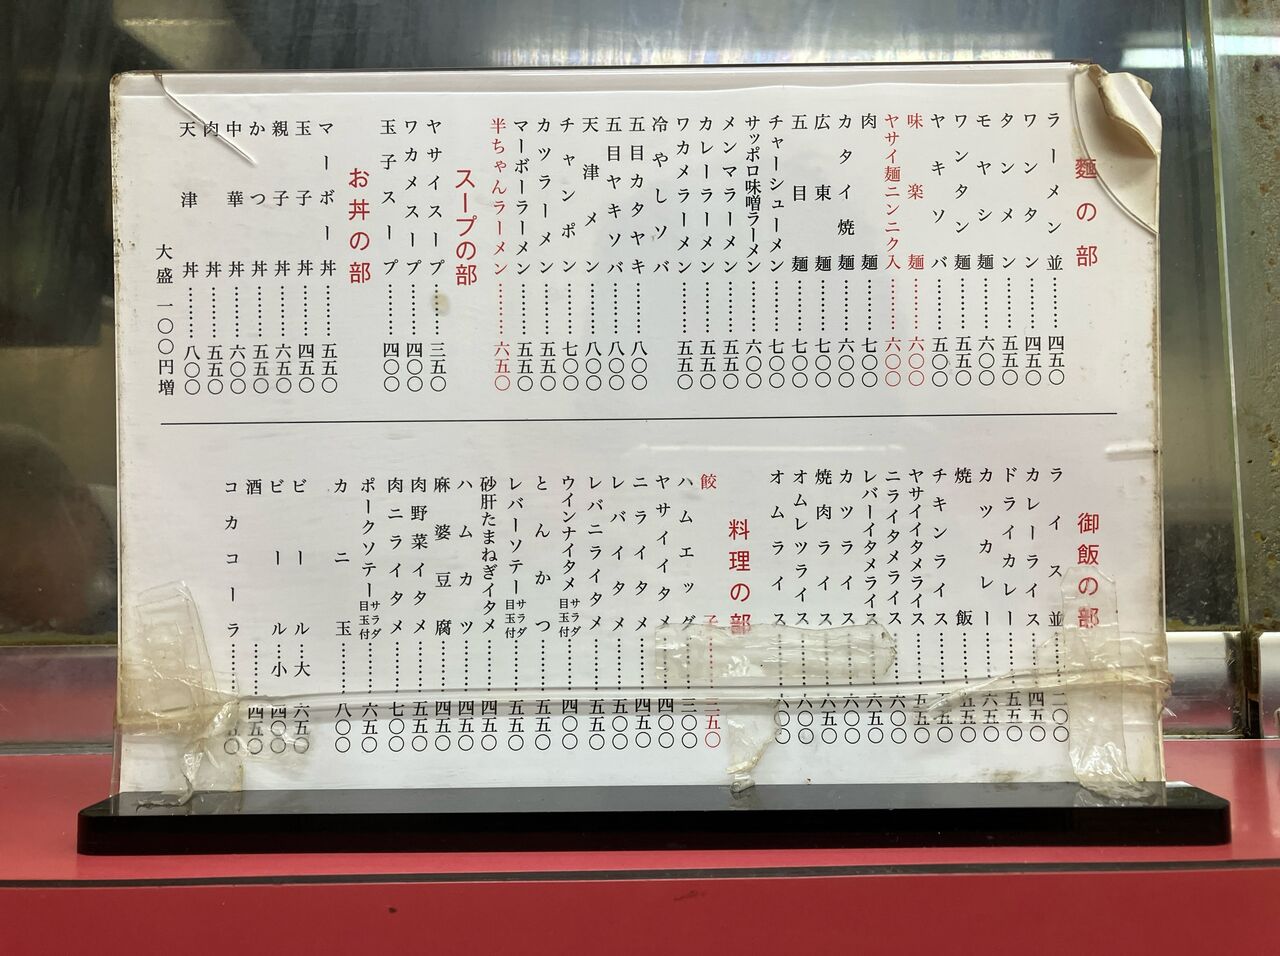 麵の部
ラーメン並……四五〇
ワンタン……四五〇
タンメン……五五〇
モヤシ麺……六〇〇
ワンタン麺……五五〇
ヤキソバ……五〇〇
味楽麺……六〇〇
ヤサイ麺ニンニク入……六〇〇
肉麺……七〇〇
カタイ焼麺……七〇〇
広東麺……七〇〇
五目麺……七〇〇
チャーシューメン……七〇〇
サッポロ味噌ラーメン……六〇〇
メンマラーメン……五五〇
カレーラーメン……五五〇
ワカメラーメン……五五〇
冷やしソバ
五目カタヤキ……八〇〇
五目ヤキソバ……八〇〇
天津メン……八〇〇
チャンポン……七〇〇
カツラーメン……五五〇
マーボーラーメン……五五〇
半ちゃんラーメン……六五〇
スープの部
ヤサイスープ……三五〇
ワカメスープ……四〇〇
玉子スープ……四〇〇
お丼の部
マーボー丼……五五〇
玉子丼……四五〇
親子丼……六五〇
かつ丼……五五〇
中華丼……六〇〇
肉丼……五五〇
天津丼……八〇〇
大盛一〇〇円増
御飯の部
ライス並……二〇〇
カレーライス……四五〇
ドライカレー……五五〇
カツカレー……六五〇
焼飯……五五〇
チキンライス……五五〇
ヤサイイタメライス……五五〇
ニライタメライス……六〇〇
レバーイタメライス……六五〇
カツライス……六〇〇
焼肉ライス……六五〇
オムレツライス……六〇〇
オムライス……六〇〇
料理の部
餃子……三五〇
ハムエッグ……三〇〇
ヤサイイタメ……四〇〇
ニライタメ……四五〇
レバイタメ……五〇〇
レバニライタメ……五五〇
ウインナイタメ サラダ目玉付……四〇〇
とんかつ……五五〇
レバーソテー サラダ目玉付……五五〇
砂肝たまねぎイタメ……四五〇
ハムカツ……四五〇
麻婆豆腐……四五〇
肉野菜イタメ……五五〇
肉ニライタメ……七〇〇
ポークソテー サラダ目玉付……六五〇
カニ玉……八〇〇
ビール大……六五〇
ビール小……四〇〇
酒……四五〇
コカコーラ……五〇